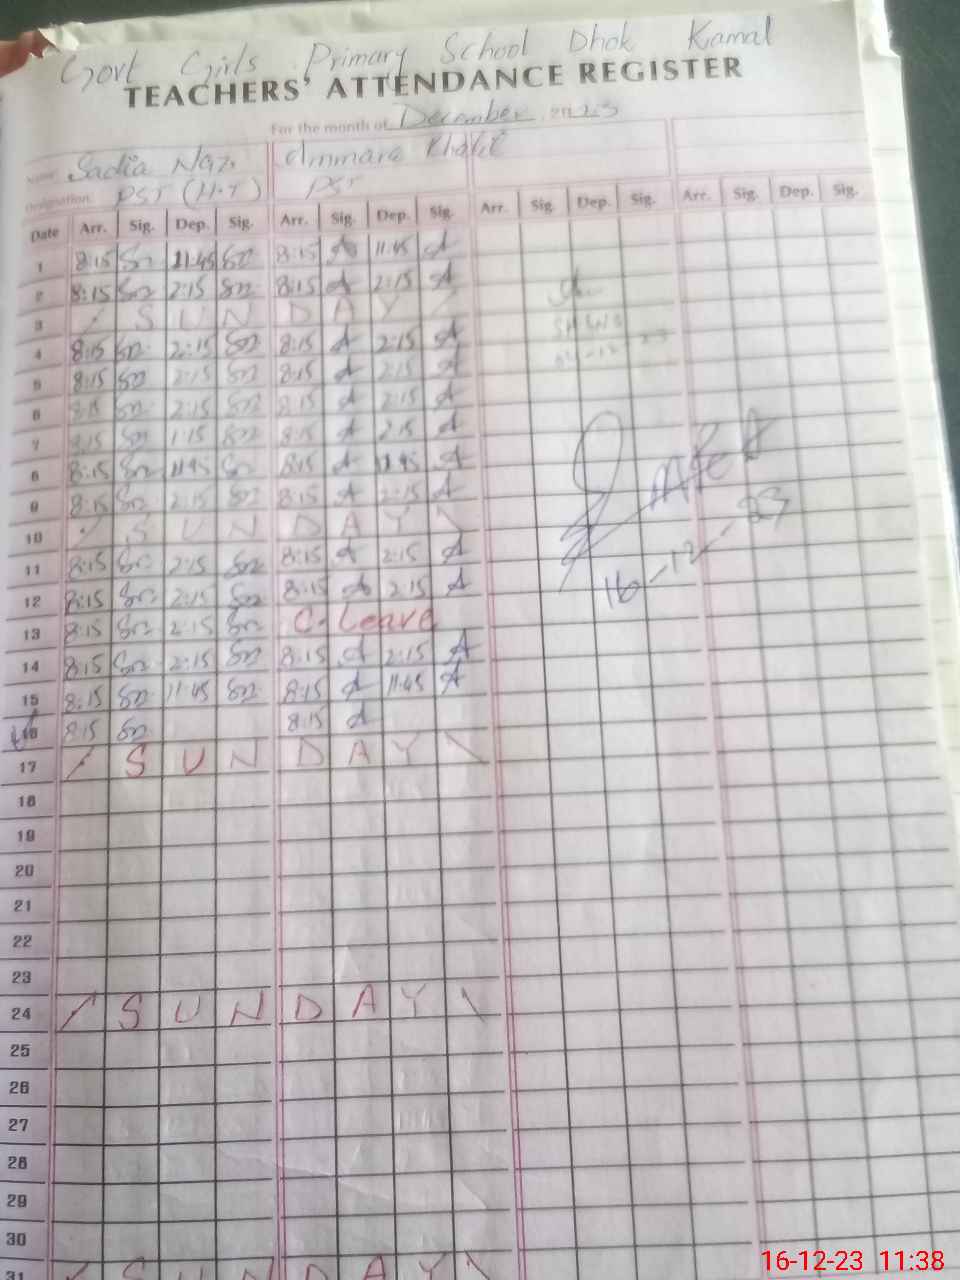 Govt Girls Primary School Dhok Kamal
TEACHERS' ATTENDANCE REGISTER
For the month of December 2023
Name Sadia Naz Ammara Khalil
Designation: PST (H.T) PST
Date Arr. Sig. Dep. Sig. Arr. Sig. Dep. Sig. Arr. Sig. Dep. Sig. Arr. Sig. Dep. Sig.
1 8:15 Sn 11:45 Sn 8:15 A 11:45 A
2 8:15 Sn 2:15 Sn 8:15 A 2:15 A
3 / S U N D A Y /
4 8:15 Sn 2:15 Sn 8:15 A 2:15 A
5 8:15 Sn 2:15 Sn 8:15 A 2:15 A
6 8:15 Sn 2:15 Sn 8:15 A 2:15 A
7 8:15 Sn 1:15 Sn 8:15 A 2:15 A
8 8:15 Sn 11:45 Sn 8:15 A 11:45 A
9 8:15 Sn 2:15 Sn 8:15 A 2:15 A
10 / S U N D A Y \
11 8:15 Sn 2:15 Sn 8:15 A 2:15 A
12 8:15 Sn 2:15 Sn 8:15 A 2:15 A
13 8:15 Sn 2:15 Sn C. Leave
14 8:15 Sn 2:15 Sn 8:15 A 2:15 A
15 8:15 Sn 11:45 Sn 8:15 A 11:45 A
16 8:15 Sn 8:15 A
17 / S U N D A Y \
18
19
20
21
22
23
24 / S U N D A Y \
25
26
27
28
29
30
31 / S U N D A Y \
16-12-23
16-12-23 11:38